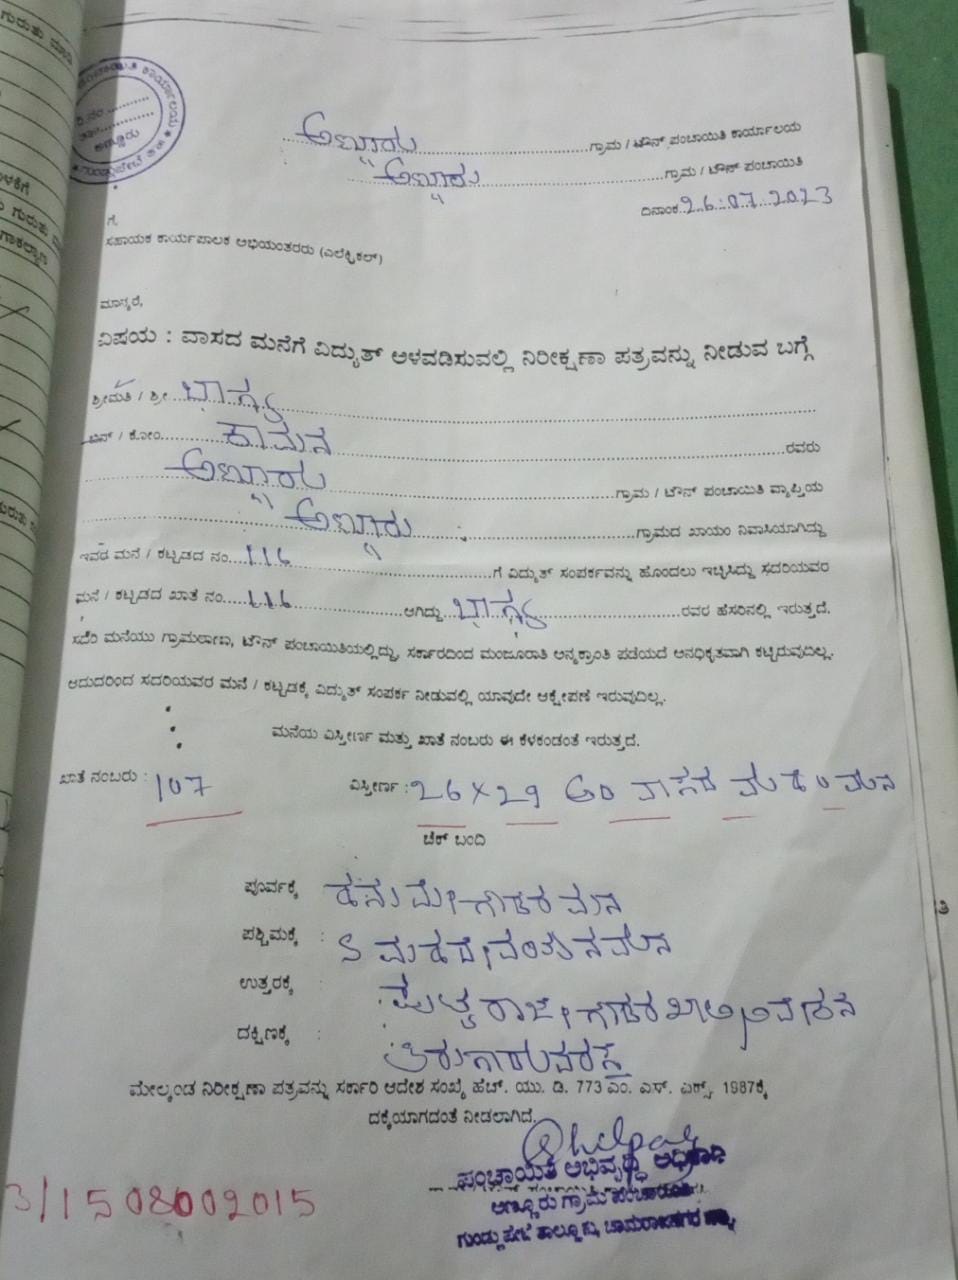 ಅಣ್ಣೂರು ಗ್ರಾಮ / ಟೌನ್ ಪಂಚಾಯಿತಿ ಕಾರ್ಯಾಲಯ
ಅಣ್ಣೂರು ಗ್ರಾಮ / ಟೌನ್ ಪಂಚಾಯಿತಿ
ದಿನಾಂಕ 26:07:2023
ಗೆ,
ಸಹಾಯಕ ಕಾರ್ಯಪಾಲಕ ಅಭಿಯಂತರರು (ಎಲೆಕ್ಟ್ರಿಕಲ್)
ಮಾನ್ಯರೆ,
ವಿಷಯ : ವಾಸದ ಮನೆಗೆ ವಿದ್ಯುತ್ ಅಳವಡಿಸುವಲ್ಲಿ ನಿರೀಕ್ಷಣಾ ಪತ್ರವನ್ನು ನೀಡುವ ಬಗ್ಗೆ
ಶ್ರೀಮತಿ / ಶ್ರೀ ಭಾಗ್ಯ
ಬಿನ್ / ಕೋಂ ಕಾಮನ ರವರು
ಅಣ್ಣೂರು ಗ್ರಾಮ / ಟೌನ್ ಪಂಚಾಯಿತಿ ವ್ಯಾಪ್ತಿಯ
ಅಣ್ಣೂರು ಗ್ರಾಮದ ಖಾಯಂ ನಿವಾಸಿಯಾಗಿದ್ದು
ಇವರ ಮನೆ / ಕಟ್ಟಡದ ನಂ. 116 ಗೆ ವಿದ್ಯುತ್ ಸಂಪರ್ಕವನ್ನು ಹೊಂದಲು ಇಚ್ಛಿಸಿದ್ದು ಸದರಿಯವರ
ಮನೆ / ಕಟ್ಟಡದ ಖಾತೆ ನಂ. 116 ಆಗಿದ್ದು ಭಾಗ್ಯ ರವರ ಹೆಸರಿನಲ್ಲಿ ಇರುತ್ತದೆ.
ಸದರಿ ಮನೆಯು ಗ್ರಾಮಠಾಣ, ಟೌನ್ ಪಂಚಾಯಿತಿಯಲ್ಲಿದ್ದು, ಸರ್ಕಾರದಿಂದ ಮಂಜೂರಾತಿ ಅನ್ಯಕ್ರಾಂತಿ ಪಡೆಯದೆ ಅನಧಿಕೃತವಾಗಿ ಕಟ್ಟಿರುವುದಿಲ್ಲ.
ಆದುದರಿಂದ ಸದರಿಯವರ ಮನೆ / ಕಟ್ಟಡಕ್ಕೆ ವಿದ್ಯುತ್ ಸಂಪರ್ಕ ನೀಡುವಲ್ಲಿ ಯಾವುದೇ ಆಕ್ಷೇಪಣೆ ಇರುವುದಿಲ್ಲ.
ಮನೆಯ ವಿಸ್ತೀರ್ಣ ಮತ್ತು ಖಾತೆ ನಂಬರು ಈ ಕೆಳಕಂಡಂತೆ ಇರುತ್ತದೆ.
ಖಾತೆ ನಂಬರು : 107 ವಿಸ್ತೀರ್ಣ : 26 x 29 ಅಂ ವಾಸದ
ಚೆಕ್ ಬಂದಿ
ಪೂರ್ವಕ್ಕೆ ಹನುಮೇಗೌಡರ ಮನೆ
ಪಶ್ಚಿಮಕ್ಕೆ :
ಉತ್ತರಕ್ಕೆ : ಪುಟ್ಟರಾಜೇಗೌಡರ ಖಾಲಿ ನಿವೇಶನ
ದಕ್ಷಿಣಕ್ಕೆ :
ಮೇಲ್ಕಂಡ ನಿರೀಕ್ಷಣಾ ಪತ್ರವನ್ನು ಸರ್ಕಾರಿ ಆದೇಶ ಸಂಖ್ಯೆ ಹೆಚ್. ಯು. ಡಿ. 773 ಎಂ. ಎನ್. ಎಕ್ಸ್, 1987ಕ್ಕೆ
ದಕ್ಕೆಯಾಗದಂತೆ ನೀಡಲಾಗಿದೆ.
ಪಂಚಾಯಿತಿ ಅಭಿವೃದ್ಧಿ ಅಧಿಕಾರಿ
ಅಣ್ಣೂರು ಗ್ರಾಮ ಪಂಚಾಯಿತಿ
ಗುಂಡ್ಲುಪೇಟೆ ತಾಲ್ಲೂಕು, ಚಾಮರಾಜನಗರ ಜಿಲ್ಲೆ
3/1508002015